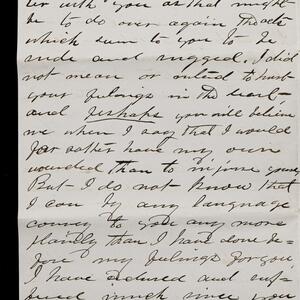 ter with you as that might
be to do over again those acts
which seem to you to be
rude and rugged. I did
not mean or intend to hurt
your feelings in the least
and perhaps you will believe
me when I say that I would
far rather have my own
wounded than to injure yours,
But I do not know that
I can by any language
convey to you any more
plainly than I have done be-
fore my feelings for you
I have endured and suf-
fered much since you